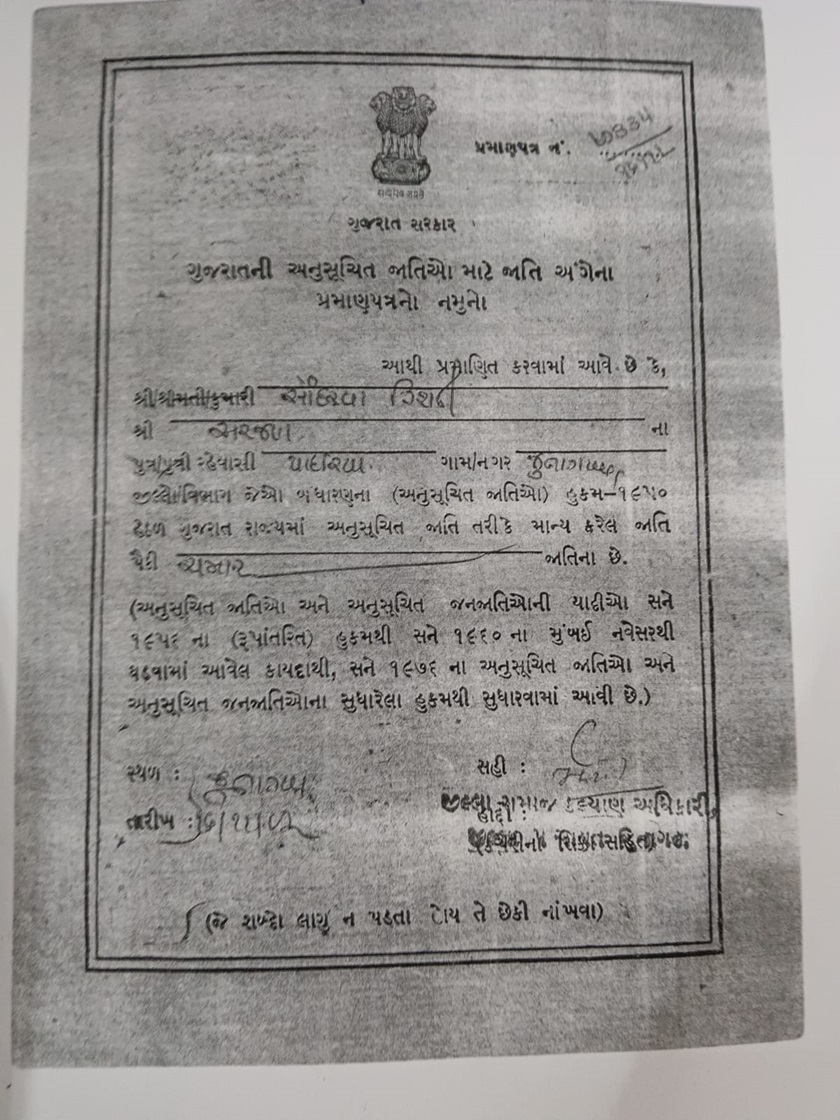 પ્રમાણપત્ર નં.
ગુજરાત સરકાર
ગુજરાતની અનુસૂચિત જાતિઓ માટે જાતિ અંગેના
પ્રમાણપત્રનો નમુનો
આથી પ્રમાણિત કરવામાં આવે છે કે,
શ્રી/શ્રીમતી/કુમારી
શ્રી ના
પુત્ર/પુત્રી રહેવાસી ગામ/નગર જુનાગઢ
જીલ્લો/વિભાગ જેઓ બંધારણના (અનુસૂચિત જાતિઓ) હુકમ-૧૯૫૦
હેઠળ ગુજરાત રાજ્યમાં અનુસૂચિત જાતિ તરીકે માન્ય કરેલ જાતિ
પૈકી ચમાર જાતિના છે.
(અનુસૂચિત જાતિઓ અને અનુસૂચિત જનજાતિઓની યાદીઓ સને
૧૯૫૬ ના (રૂપાંતરિત) હુકમથી સને ૧૯૬૦ ના મુંબઈ નવેસરથી
ઘડવામાં આવેલ કાયદાથી, સને ૧૯૭૬ ના અનુસૂચિત જાતિઓ અને
અનુસૂચિત જનજાતિઓના સુધારેલા હુકમથી સુધારવામાં આવી છે.)
સ્થળ : જુનાગઢ
સહી :
તારીખ :
જીલ્લા સમાજ કલ્યાણ અધિકારી,
(જે શબ્દો લાગૂ ન પડતા હોય તે છેકી નાંખવા)